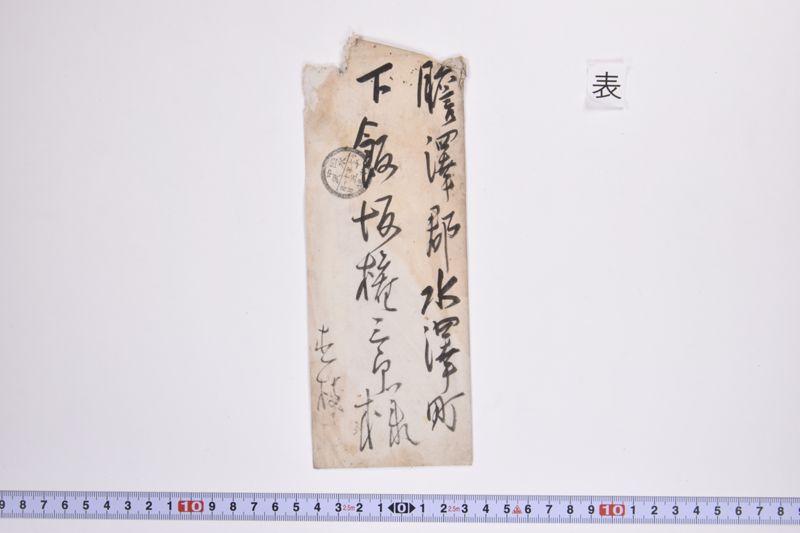 表
膽澤郡水澤町
下飯坂權三郎様
9 8 7 6 5 4 3 2 1 10 9 8 7 6 5 4 3 2.5m 2 1 0 1 2 2.5m 3 4 5 6 7 8 9 10 1 2 3 4 5 6 7 8 9